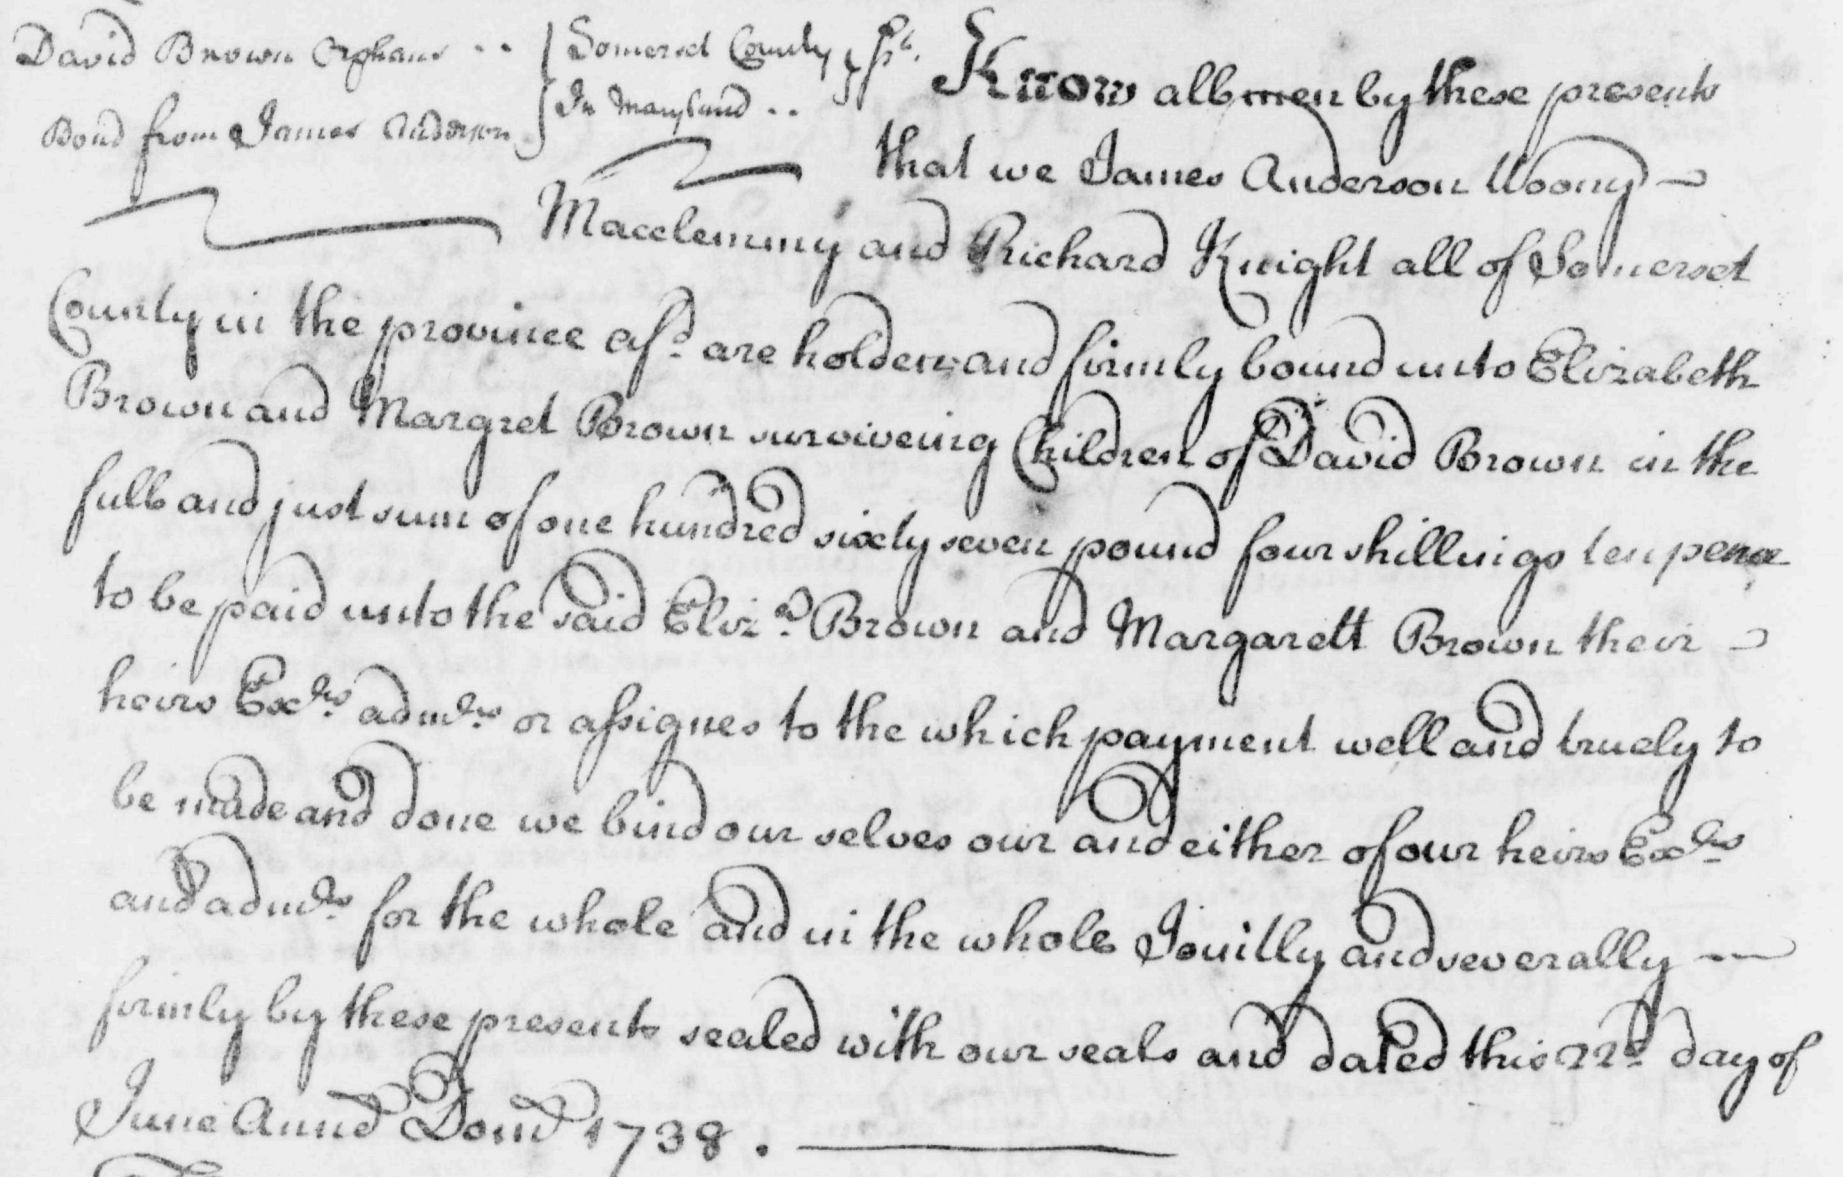 David Brown Orphans .. } Somerset County } ss.t Know all men by these presents
Bond from James Anderson } In Maryland .. that we James Anderson Woony
Macclemmy and Richard Knight all of Somerset
County in the province afsd. are holden and firmly bound unto Elizabeth
Brown and Margret Brown surviveing Children of David Brown in the
full and just sum of one hundred sixty seven pound four shillings ten pence
to be paid unto the said Eliza. Brown and Margarett Brown their
heirs Exrs. admrs. or assignes to the which payment well and truely to
be made and done we bind our selves our and either of our heirs Exrs.
and admrs. for the whole and in the whole Jointly and severally
firmly by these presents sealed with our seals and dated this 22d. day of
June Anno Domo 1738.